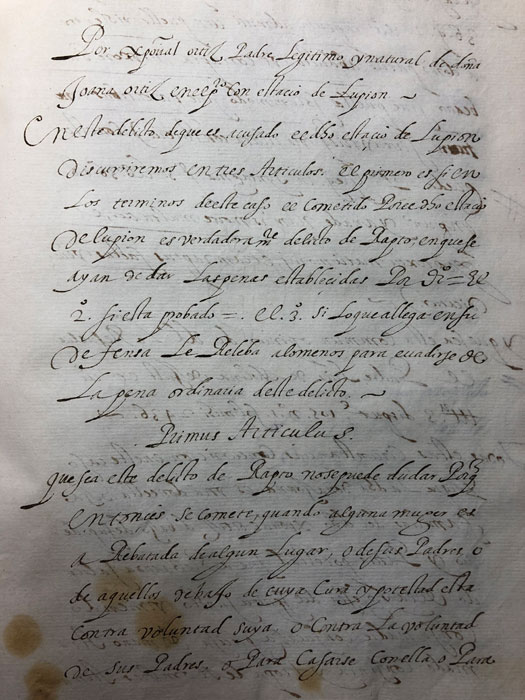 Por xpoual ortiz Padre Legitimo y natural de doña
Joana ortiz en el pº con estacio de Lupion ~
En este delicto, de que es acusado el dho estacio de Lupion
discurriremos en tres Articulos. el primero es si en
Los terminos de este caso el cometido Por el dho estacio
de lupion es verdadoramte delicto de Rapto, en que se
ayan de dar Las penas establecidas Por drº = El
2º. si esta probado =. el 3º. si Lo que allega en su
defensa Le Releba a lo menos para euadirse de
La pena ordinaria deste delicto. ~
Primus Articulus.
que sea este delito de Rapto no se puede dudar Porq
entonces se comete, quando alguna muger es
a Rebatada de algun Lugar, o de sus Padres, o
de aquellos debajo de cuya Cura y potestad esta
contra voluntad suya, o Contra La voluntad
de sus Padres. o Para Casarse Con ella o Para